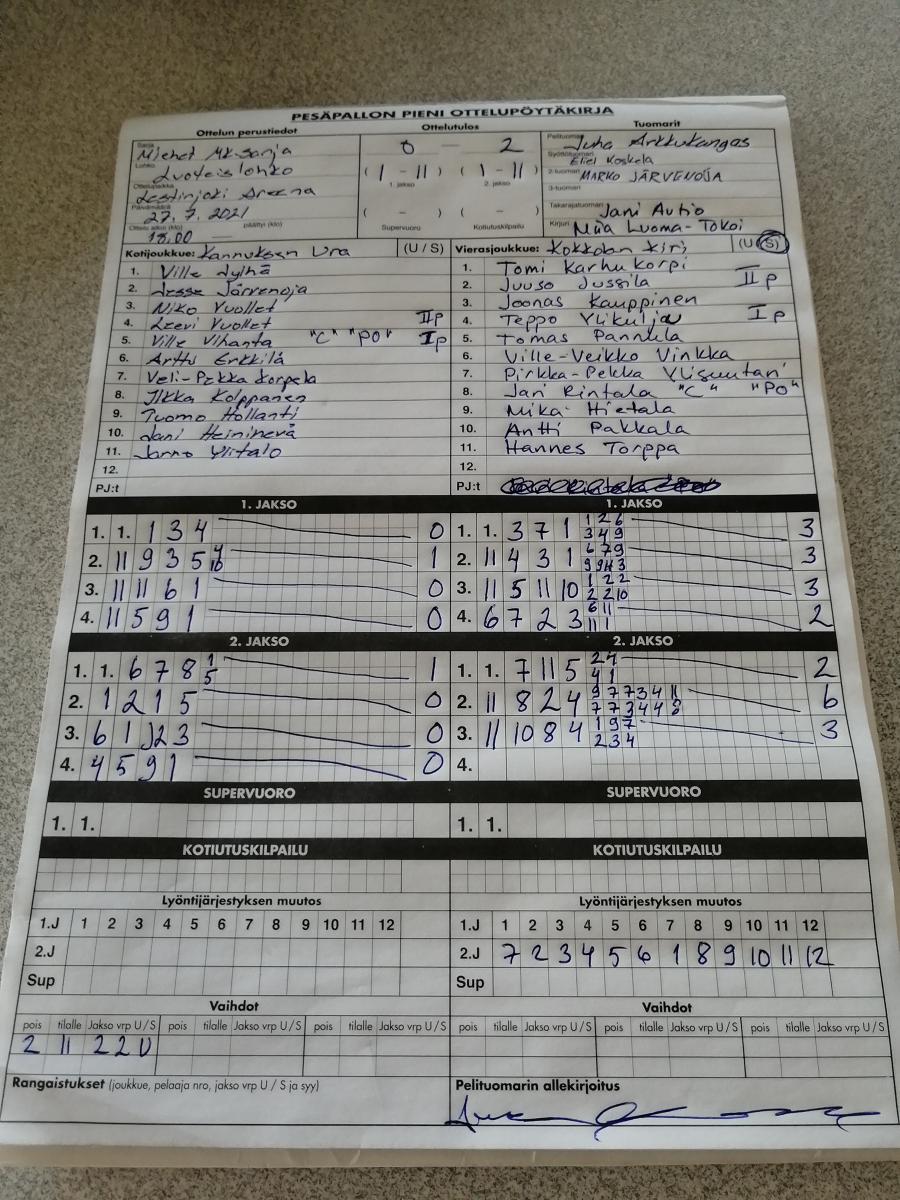 PESÄPALLON PIENI OTTELUPÖYTÄKIRJA
Ottelun perustiedot Ottelutulos Tuomarit
Sarja Miehet MK-sarja 0 — 2 Pelituomari Juha Arkkukangas
Lohko Luoteislohko (1 - 11) (1 - 11) Eliel Koskela
1. jakso 2. jakso 2-tuomari MARKO JÄRVENOJA
Ottelupaikka Lestinjoki Areena 3-tuomari
Päivämäärä 27.7.2021 ( - ) ( - ) Takarajatuomari Jani Autio
Ottelu alkoi (klo) 18.00 päättyi (klo) Supervuoro Kotiutuskilpailu Kirjuri Miia Luoma-Tokoi
Kotijoukkue: Kannuksen Ura (U / S) Vierasjoukkue: Kokkolan Kiri (U/S)
1. Ville Jylhä 1. Tomi Karhukorpi
2. Jesse Järvenoja 2. Juuso Jussila II p
3. Niko Vuollet 3. Joonas Kauppinen
4. Leevi Vuollet II p 4. Teppo Ylikulju I p
5. Ville Vihanta "C" "PO" I p 5. Tomas Pannula
6. Arttu Erkkilä 6. Ville-Veikko Vinkka
7. Veli-Pekka Korpela 7. Pirkka-Pekka Ylisuutari
8. Ilkka Kolppanen 8. Jari Rintala "C" "PO"
9. Tuomo Hollanti 9. Mika Hietala
10. Jani Heininevä 10. Antti Pakkala
11. Jarno Ylitalo 11. Hannes Torppa
12. 12.
PJ:t PJ:t
1. JAKSO 1. JAKSO
1. 1. 1 3 4 0 1. 1. 3 7 1 1 2 6 3 4 9 3
2. 11 9 3 5 4 10 1 2. 11 4 3 1 6 7 9 3
3. 11 11 6 1 0 3. 11 5 11 10 1 2 2 2 2 10 3
4. 11 5 9 1 0 4. 6 7 2 3 6 11 11 1 2
2. JAKSO 2. JAKSO
1. 1. 6 7 8 1 5 1 1. 1. 7 11 5 2 4 4 1 2
2. 1 2 1 5 0 2. 11 8 2 4 9 7 7 3 4 11 7 7 3 4 4 8 6
3. 6 1 2 3 0 3. 11 10 8 4 1 9 7 2 3 4 3
4. 4 5 9 1 0 4.
SUPERVUORO SUPERVUORO
1. 1. 1. 1.
KOTIUTUSKILPAILU KOTIUTUSKILPAILU
Lyöntijärjestyksen muutos Lyöntijärjestyksen muutos
1.J 1 2 3 4 5 6 7 8 9 10 11 12 1.J 1 2 3 4 5 6 7 8 9 10 11 12
2.J 2.J 7 2 3 4 5 6 1 8 9 10 11 12
Sup Sup
Vaihdot Vaihdot
pois tilalle Jakso vrp U / S pois tilalle Jakso vrp U / S pois tilalle Jakso vrp U / S pois tilalle Jakso vrp U / S pois tilalle Jakso vrp U / S pois tilalle Jakso vrp U / S
2 11 2 2 U
Rangaistukset (joukkue, pelaaja nro, jakso vrp U / S ja syy) Pelituomarin allekirjoitus